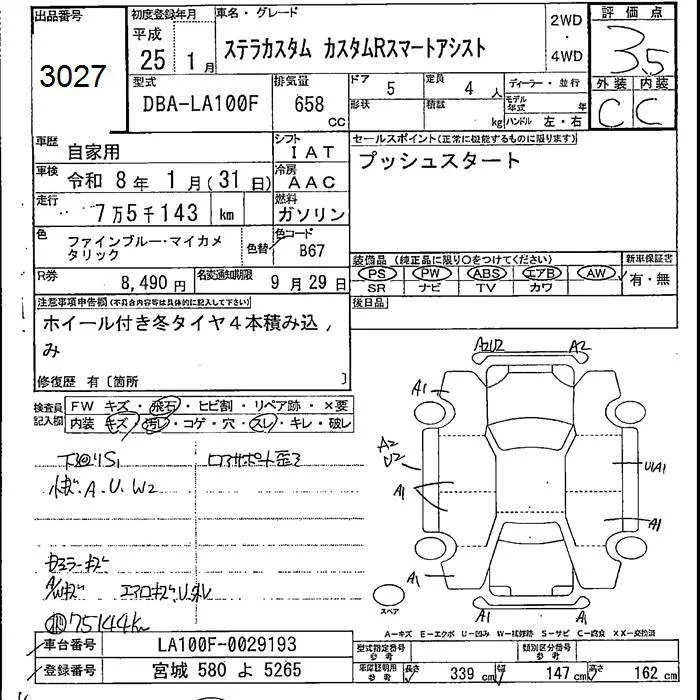 出品番号
3027
初度登録年月
平成
25 1月
車名・グレード
ステラカスタム カスタムRスマートアシスト
2WD
・
4WD
評価点
3.5
外装 内装
C C
型式
DBA-LA100F
排気量
658
CC
ドア 5
定員 4人
形状
積載 kg
ディーラー・並行
モデル年式 年
ハンドル 左・右
車歴
自家用
シフト
IAT
車検
令和 8年 1月(31日)
冷房
AAC
走行
7万5千143 km
燃料
ガソリン
色
ファインブルー・マイカメタリック
色替
色コード
B67
R券
8,490円
名変通知期限
9月29日
セールスポイント(正常に機能するものに限ります)
プッシュスタート
装備品(純正品に限り○をつけてください)
PS PW ABS エアB AW
SR ナビ TV カワ
新車保証書
有・無
後日品
注意事項申告欄(不具合内容等は具体的に記入して下さい)
ホイール付き冬タイヤ4本積み込み
修復歴 有〔箇所 〕
検査員記入欄
FW キズ・飛石・ヒビ割・リペア跡・×要
内装 キズ・汚レ・コゲ・穴・スレ・キレ・破レ
下回りS1
コアサポート歪
A.U.W2
75144K
A2U2 A2
A1
A2
U2
A1
U1A1
A1
A1
A1 A1
スペア
A-キズ E-エクボ U-凹み W-補修跡 S-サビ C-腐食 XX-交換済
車台番号
LA100F-0029193
登録番号
宮城 580 よ 5265
型式指定番号
参考
類別区分番号
参考
車庫証明用
参考
長さ 339cm
幅 147cm
高さ 162cm